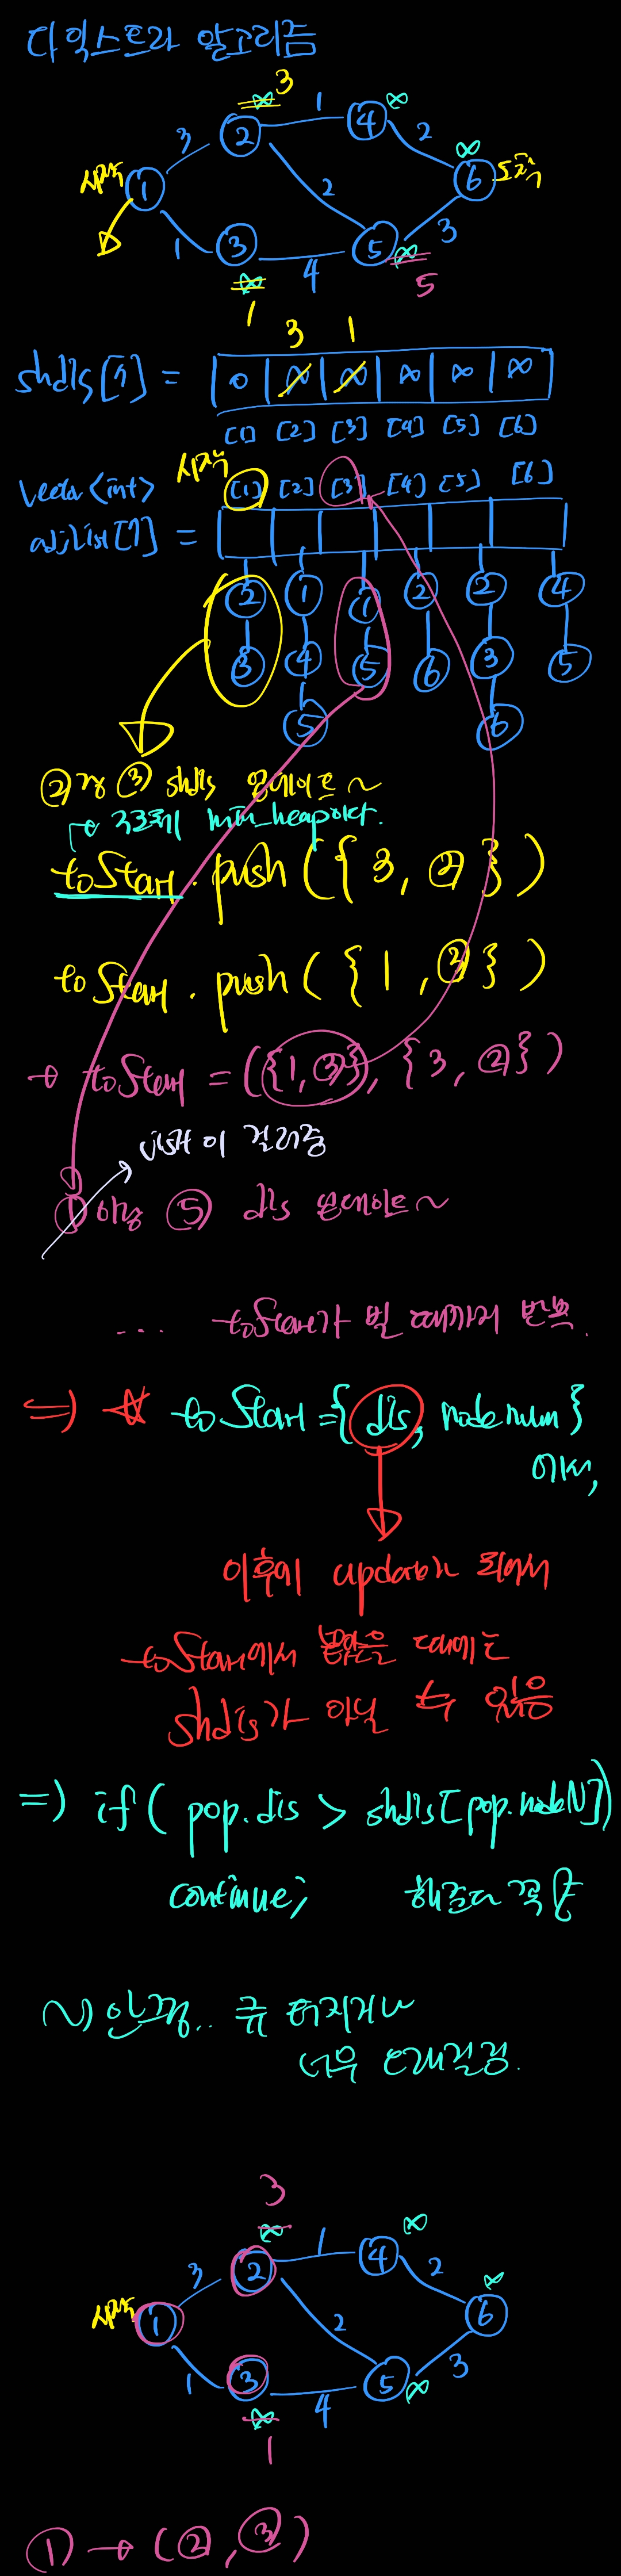 다익스트라 알고리즘
∞ 3
1
∞
3
②
④
2
∞
시작
①
2
⑥
도착
1
③
4
⑤
∞
3
∞
5
1
3 1
shdis[7] = | 0 | ∞ | ∞ | ∞ | ∞ | ∞ |
[1] [2] [3] [4] [5] [6]
시작
vector<int> [1] [2] [3] [4] [5] [6]
adjList[7] =
② ① ① ② ② ④
③ ④ ⑤ ⑥ ③ ⑤
⑤ ⑥
②랑 ③ shdis 업데이트~
우선순위 min_heap이다.
toStart.push({3, ②})
toStart.push({1, ③})
→ toStart = ({1, ③}, {3, ②})
visit이 걸러줌
① 이랑 ⑤ dis 업데이트~
... toStart가 빌 때까지 반복.
⇒ ☆ toStart = {dis, nodenum}
에서,
이후에 update가 되어서
toStart에서 뽑았을 때에는
shdis가 아닐 수 있음
⇒ if( pop.dis > shdis[pop.nodeN])
continue; 해준다 꼭
~) 안그럼.. 큐 터지거나
너무 오래걸림.
3
∞
1
∞
3
②
④
2
∞
시작
①
2
⑥
1
③
4
⑤
∞
3
∞
1
① → (②, ③)